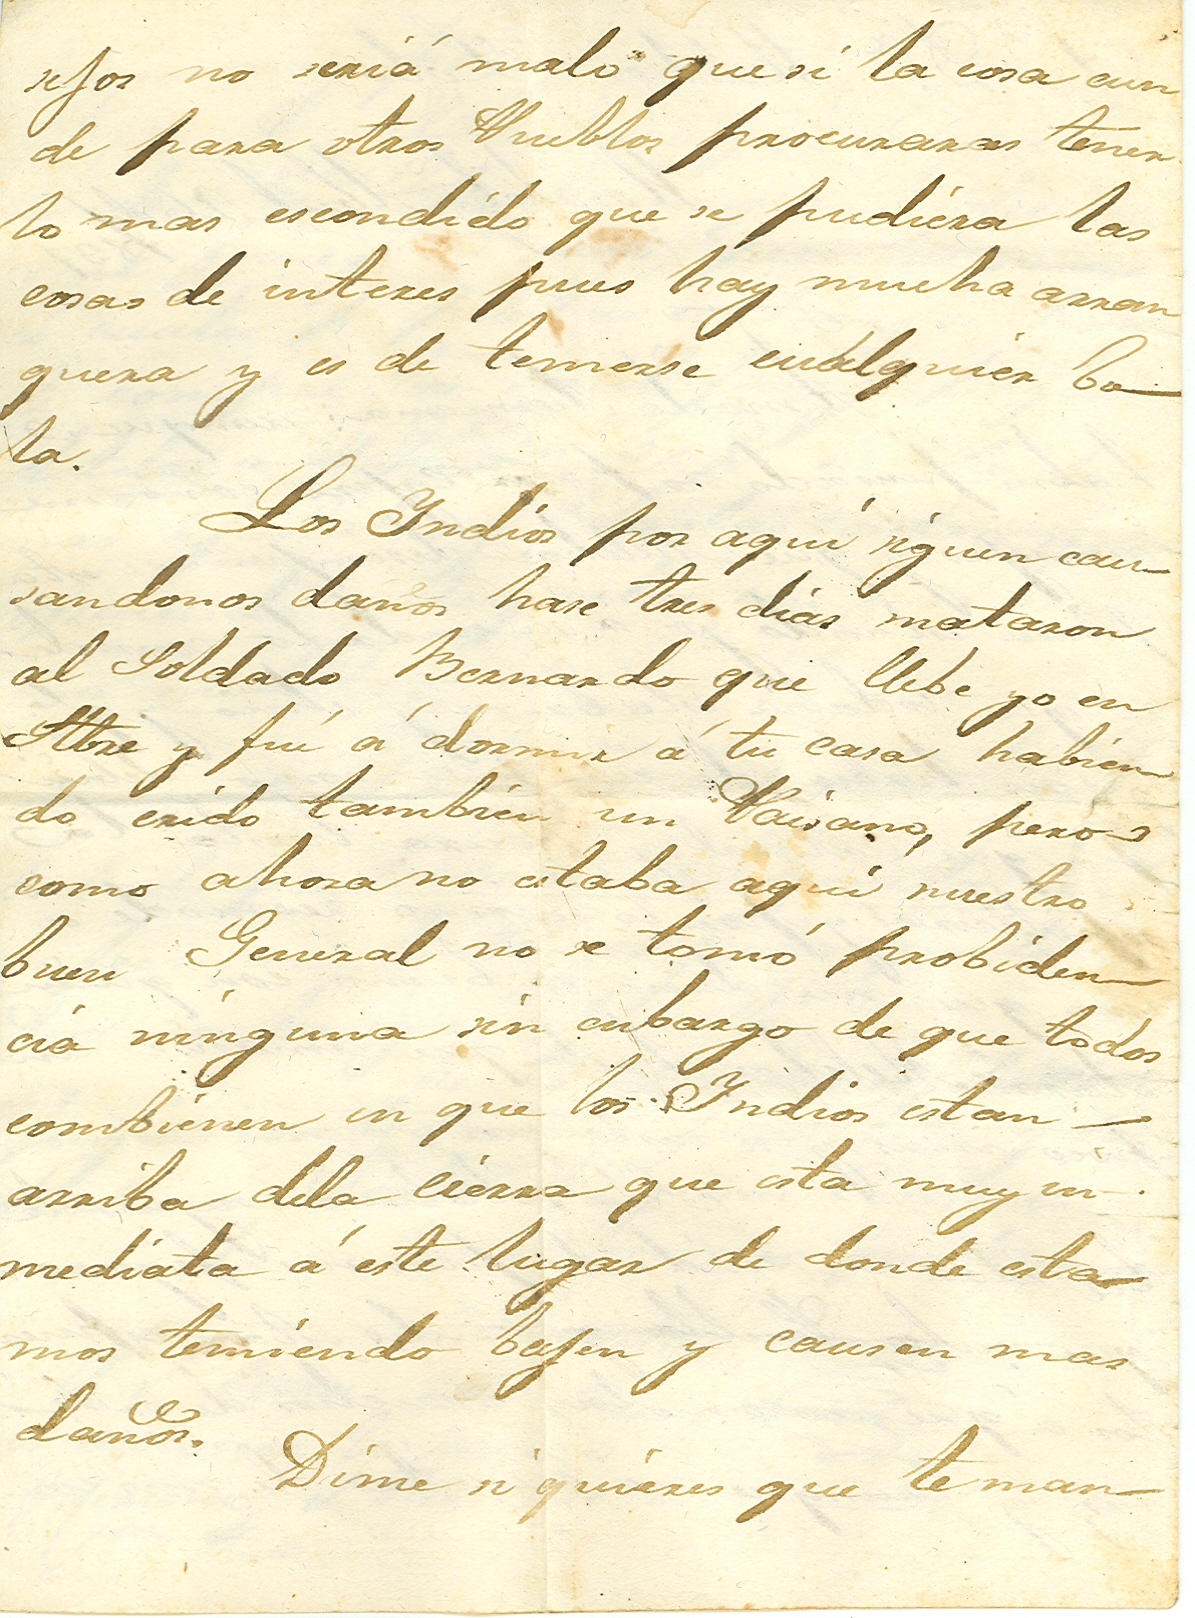 sejos no seriá malo que si la cosa cun
de para otros Pueblos procuraras tener
lo mas escondido que se pudiera las
cosas de interes pues hay mucha arran
quera y es de temerse cualquier bo
la.
Los Indios por aquí siguen cau-
sandonos daños hase tres días mataron
al Soldado Bernardo que llebe yo en
y fué á dormir á tu casa habien
do erido también un Paisano, pero
como ahora no estaba aquí nuestro
buen General no se tomó probiden-
cia ninguna sin enbargo de que todos
combienen en que los Indios estan
arriba dela cierra que esta muy in-
mediata á este lugar de donde esta
mos temiendo bajen y causen mas
daños.
Dime si quieres que te man-